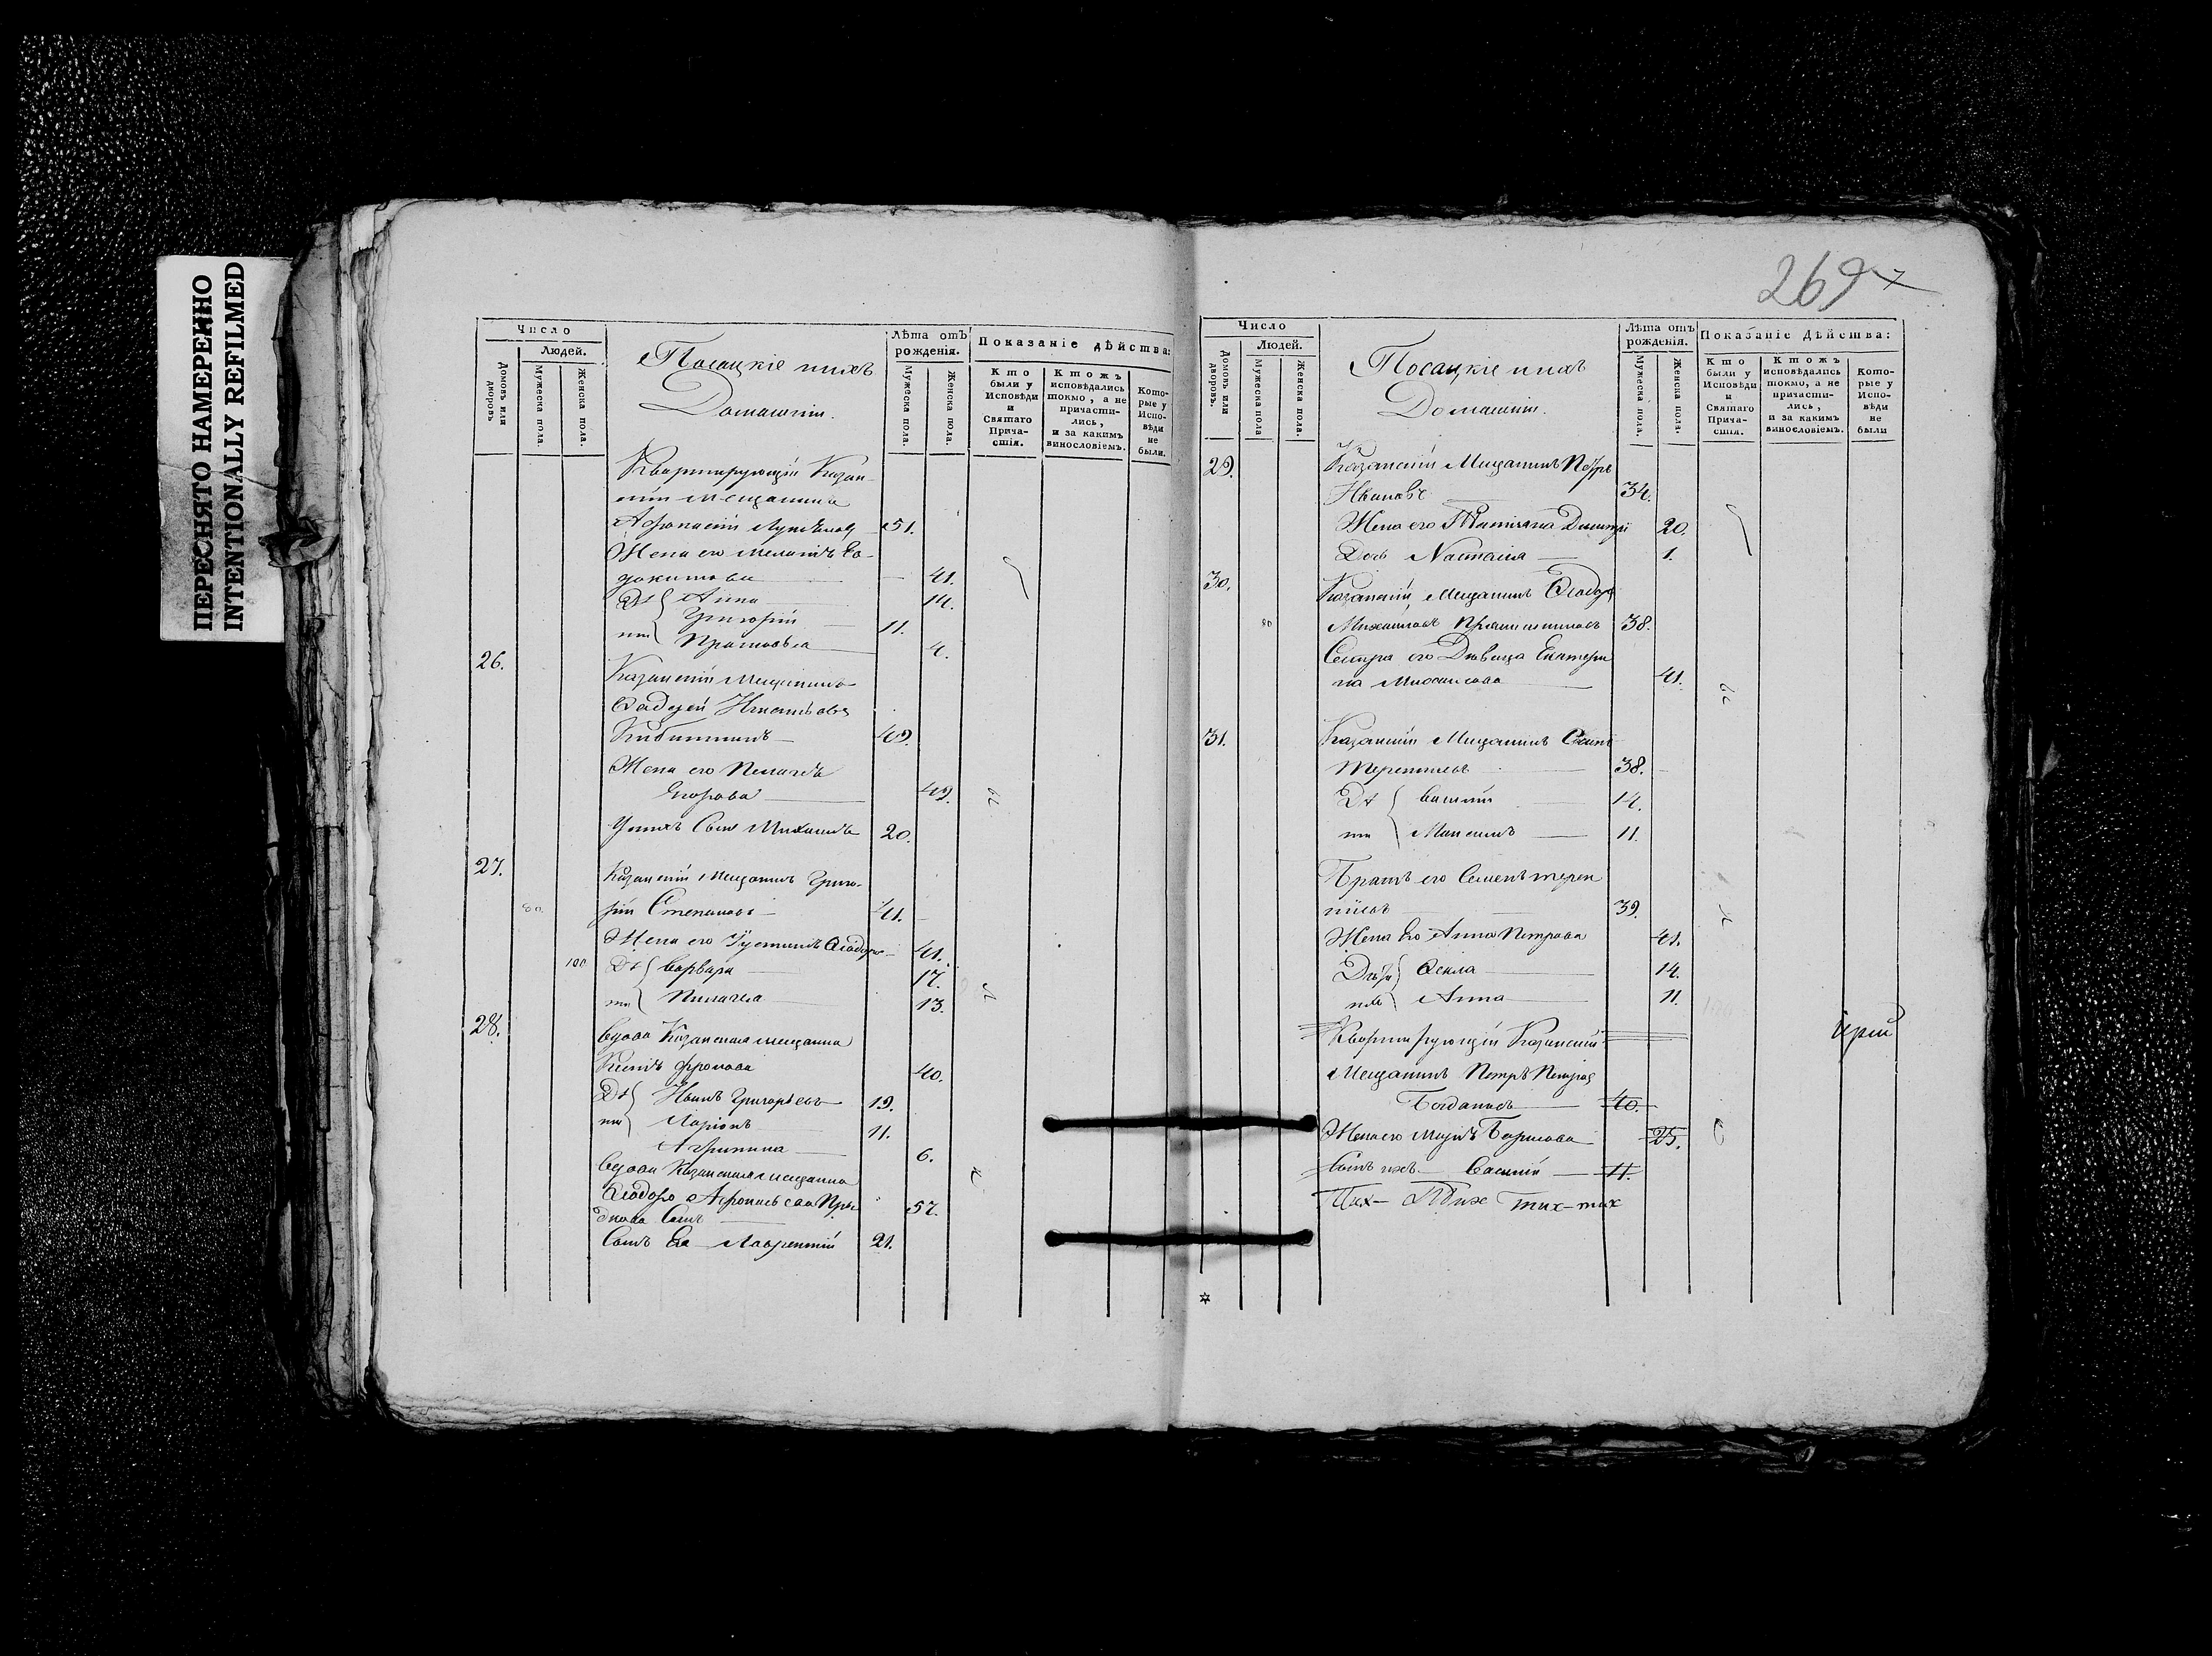 ПЕРЕСНЯТО НАМЕРЕННО
INTENTIONALLY REFILMED
Число
Людей.
Домовъ или дворовъ.
Мужеска пола.
Женска пола.
Посацкіе и ихъ
Домашніи.
Лѣта отъ
рожденія.
Мужеска пола.
Женска пола.
Показаніе дѣйства:
Кто
были у
Исповѣди
и
Святаго
Прича-
стія.
Ктожъ
исповѣдались
токмо, а не
причасти-
лись,
и за какимъ
винословіемъ.
Кото-
рые у
Испо-
вѣди
не
были.
Квартирующій Казан-
скій Мещанинъ
51.
Жена его Меланія Ев-
докимова 41.
Дѣ Анна 14.
Григорій 11.
ти Прасковья 4.
26.
Казанскій Мещанинъ
Фадей Игнатьевъ
49.
Жена его Пелагея
Егорова 49.
У нихъ Сынъ Михаилъ 20.
27.
Казанскій Мещанинъ Григо-
80
рій Степановъ 41.
Жена его Устинья Федоро 41.
100
Дѣ Варвара 17.
ти Пелагея 13.
28.
Вдова Казанская мещанка
Фролова 40.
Дѣ Иванъ Григорьевъ 19.
ти Ларіонъ 11.
Агрипина 6.
Вдова Казанская мещанка
57.
Сынъ Ея Лаврентій 21.
269
Число
Людей.
Домовъ или дворовъ.
Мужеска пола
Женска пола.
Посацкіе и ихъ
Домашніи.
Лѣта отъ
рожденія.
Мужеска пола.
Женска пола.
Показаніе Дѣйства:
Кто
были у
Исповѣди
и
Святаго
Прича-
стія.
Ктожъ
исповѣдались
токмо, а не
причасти-
лись,
и за какимъ
винословіемъ.
Кото-
рые у
Испо-
вѣди
не
были
29.
Казанскій Мещанинъ Петръ
Ивановъ 34.
Жена его Татіана Дмитрі 20.
Дочь Настасія 1.
30.
Казанскій Мещанинъ Федоръ
80
Михаиловъ 38.
Сестра его Дѣвица Екатери
на Михаилова 41.
31.
Казанскій Мещанинъ
Терентьевъ 38.
Дѣ Василій 14.
ти Максимъ 11.
Братъ его Семенъ терен
тьевъ 39.
Жена Его Анна Петрова 41.
Дѣ Фекла 14.
Анна 11.
Квартирующій Казанскій
Мещанинъ Петръ Петровъ
Богдановъ 40.
Жена его Марія Борисова 25.
Сынъ ихъ Василій 11.
Тих-тих